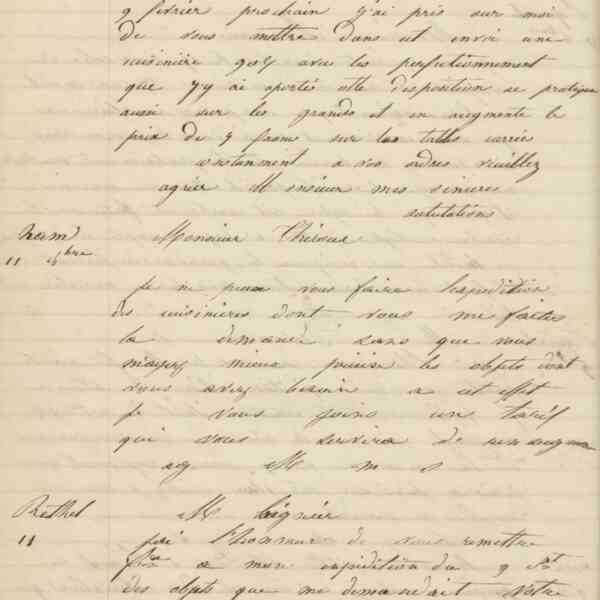 9 février prochain j'ai pris sur moi
de vous mettre dans cet envoi une
cuisinière avec les perfectionnement
que j'y ai aportés cette disposition se pratique
aussi sur les grandes et en augmente le
prix de 7 francs sur les tailles carrée
constanment a vos ordres veuillez
agréer Monsieur mes sinceres
salutations
Monsieur
11
je ne peux vous faire l'expedition
des cuisinieres dont vous me faites
la demande sans que vous
m'ayez mieux précisé les objets dont
vous avez besoin a cet effet
je vous joins un tarif
qui vous servira de
ag M m s
Rethel M Lignier
11 j'ai l'honneur de vous remettre
fre a mon expedition du 9 ct
des objets que me demandait votre